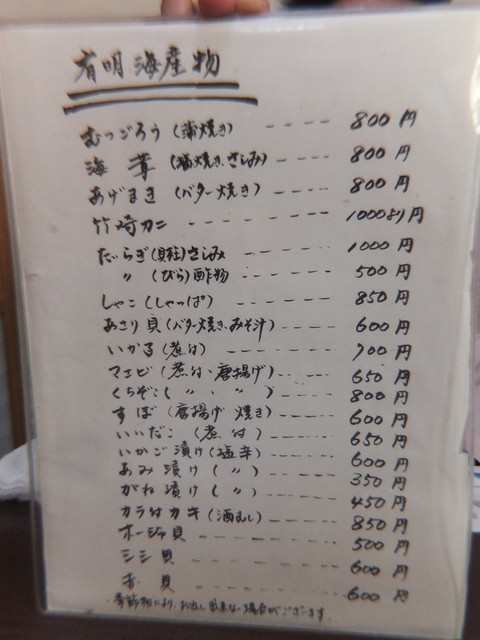 有明海産物
むつごろう(蒲焼き) ---- 800円
海茸(粕焼き、さしみ) ---- 800円
あげまき(バター焼き) ---- 800円
竹崎カニ ------- 1000より円
たいらぎ(貝柱)さしみ ---- 1000円
〃(びら)酢物 ---- 500円
しゃこ(しゃっぱ) ------ 850円
あさり貝(バター焼き、みそ汁) ---- 600円
いかる(煮付) ------- 700円
マエビ(煮付・唐揚げ) ---- 650円
くちぞこ(〃、〃) ---- 800円
すぼ(唐揚げ 焼き) ---- 600円
いいだこ(煮付) ----- 650円
いかご漬け(塩辛) ----- 600円
あみ漬け(〃) ------ 350円
がね漬け(〃) ------ 450円
カラ付カキ(酒むし) ---- 850円
ホージャ貝 ------- 500円
シシ貝 -------- 600円
香貝 -------- 600円
季節物により、お出し出来ない場合がございます。